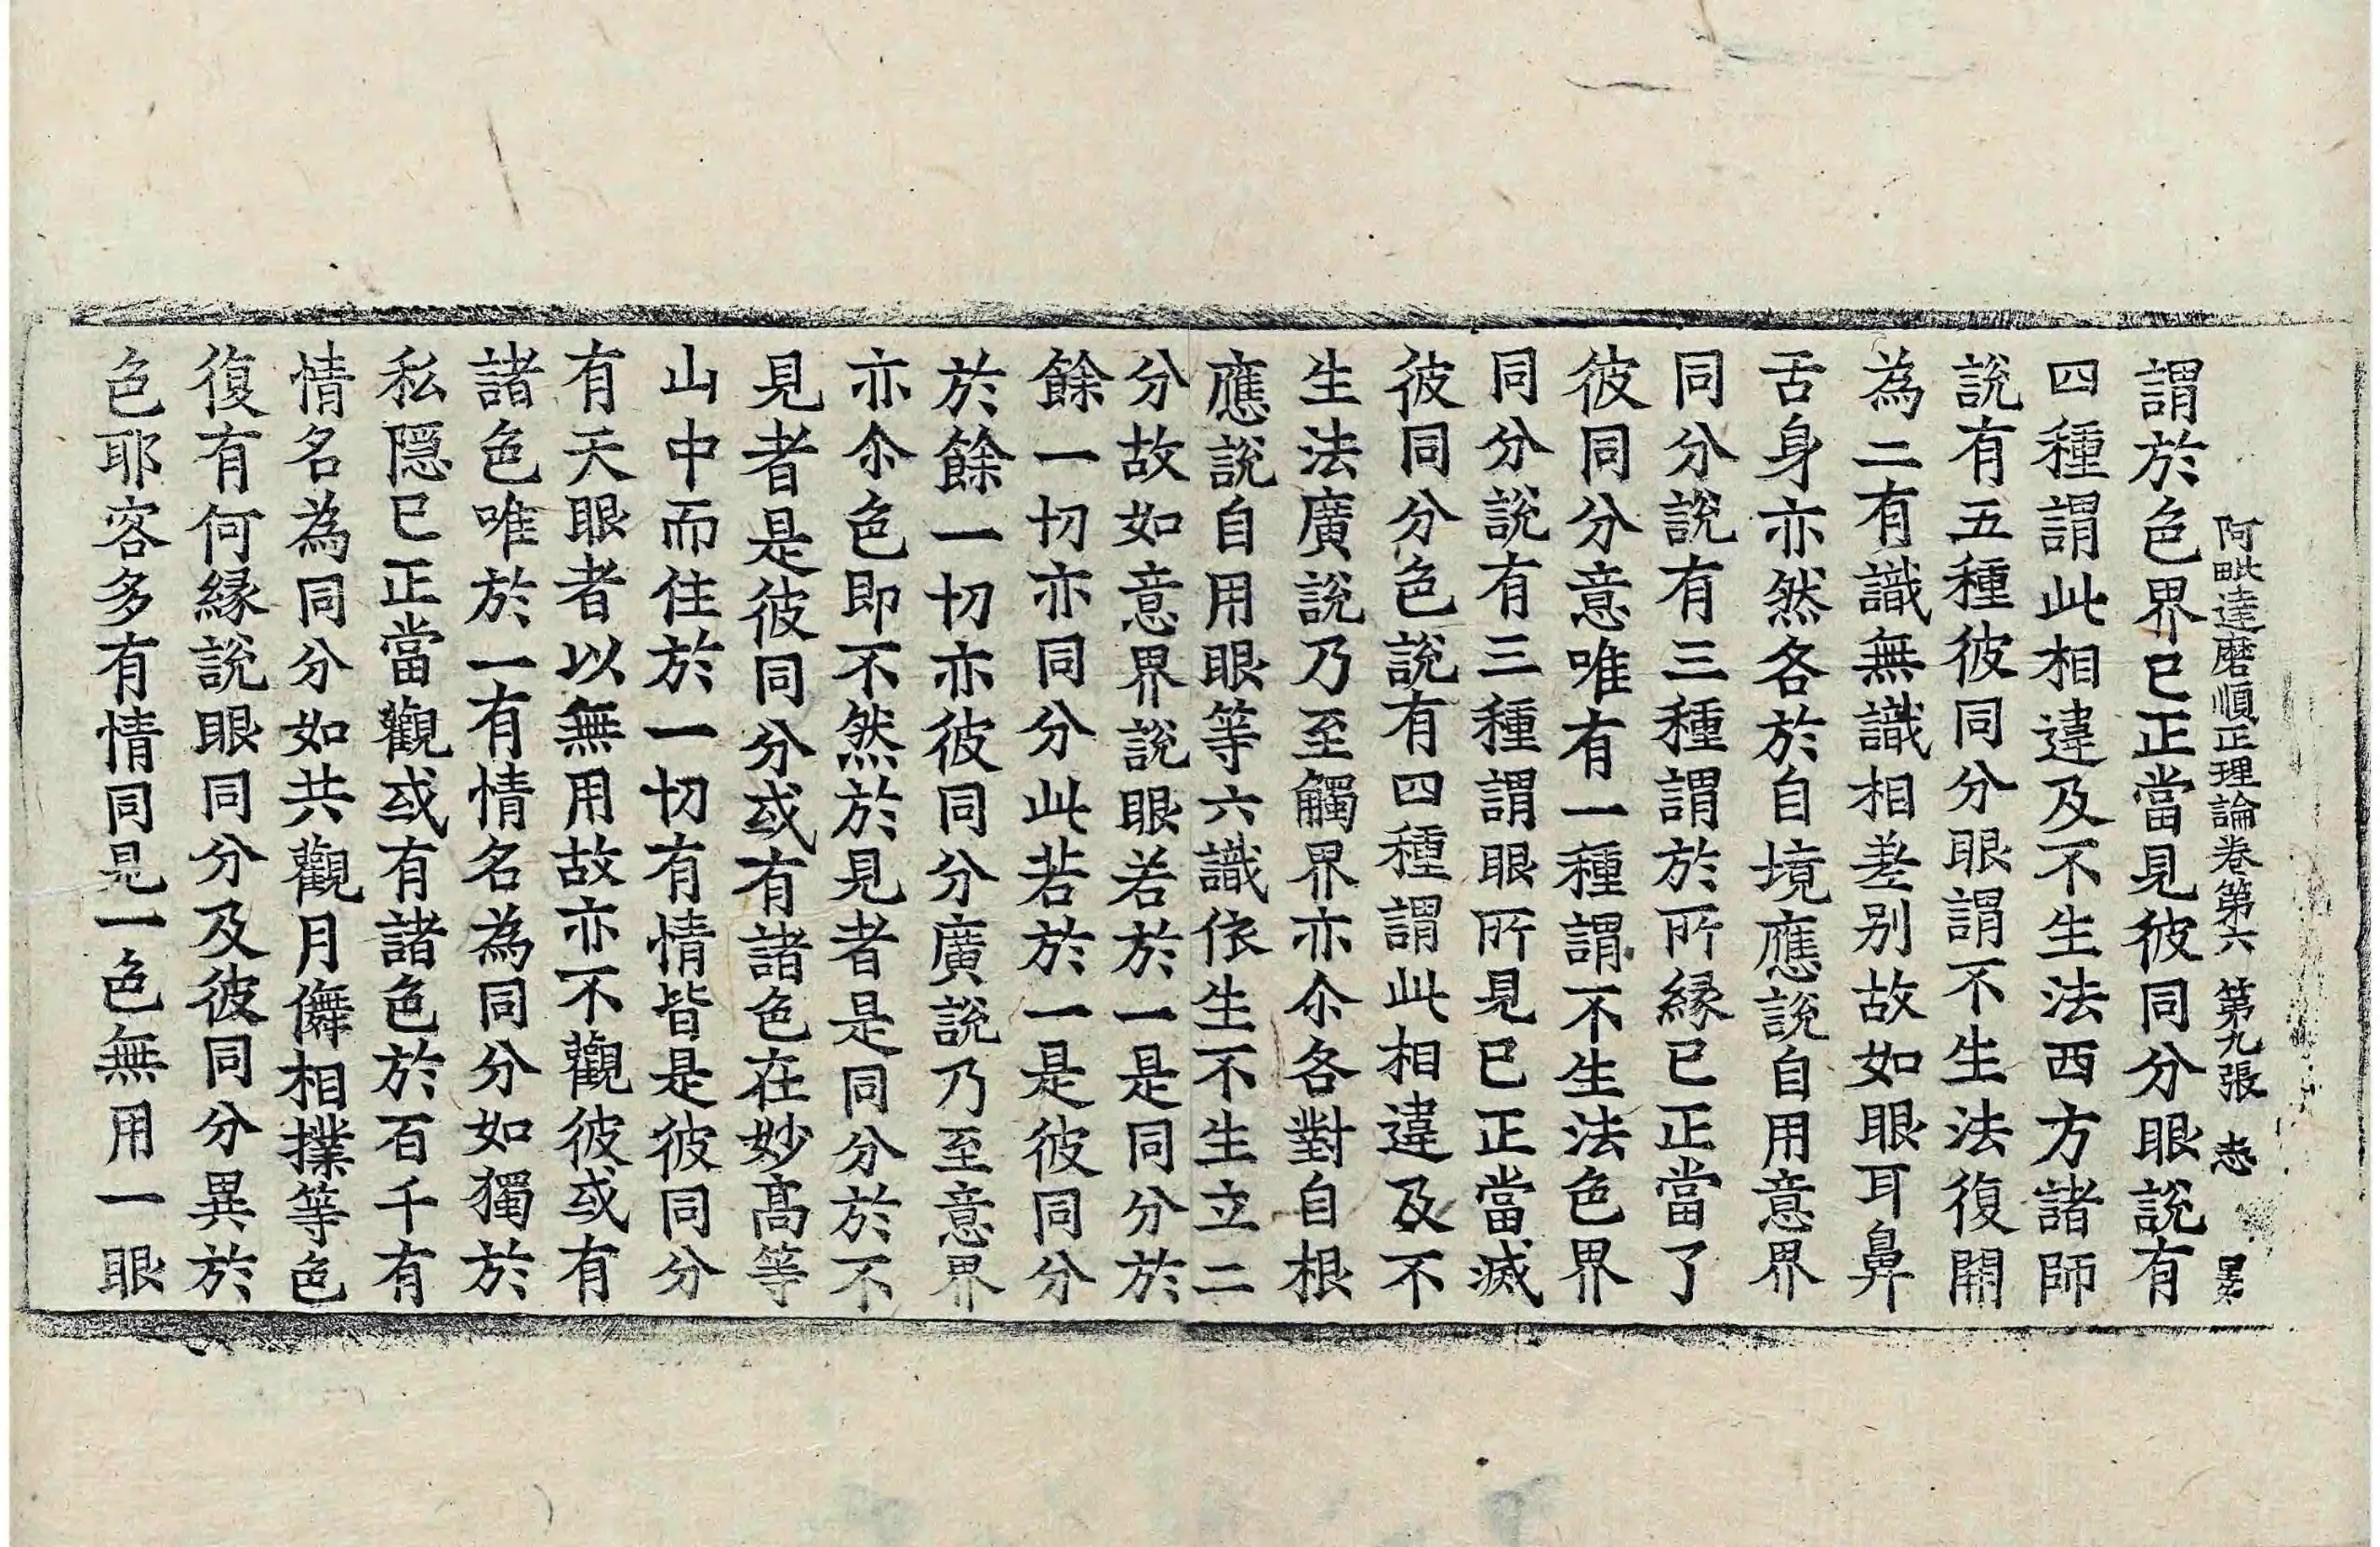 阿毗達磨順正理論卷第六 第九張
謂於色界已正當見彼同分眼說有
四種謂此相違及不生法西方諸師
說有五種彼同分眼謂不生法復開
為二有識無識相差别故如眼耳鼻
舌身亦然各於自境應說自用意界
同分說有三種謂於所緣已正當了
彼同分意唯有一種謂不生法色界
同分說有三種謂眼所見已正當滅
彼同分色說有四種謂此相違及不
生法廣說乃至觸界亦尒各對自根
應說自用眼等六識依生不生立二
分故如意界說眼若於一是同分於
餘一切亦同分此若於一是彼同分
於餘一切亦彼同分廣說乃至意界
亦尒色即不然於見者是同分於不
見者是彼同分或有諸色在妙髙等
山中而住於一切有情皆是彼同分
有天眼者以無用故亦不觀彼或有
諸色唯於一有情名為同分如獨於
私隱已正當觀或有諸色於百千有
情名為同分如共觀月儛相撲等色
復有何緣說眼同分及彼同分異於
色耶容多有情同見一色無用一眼